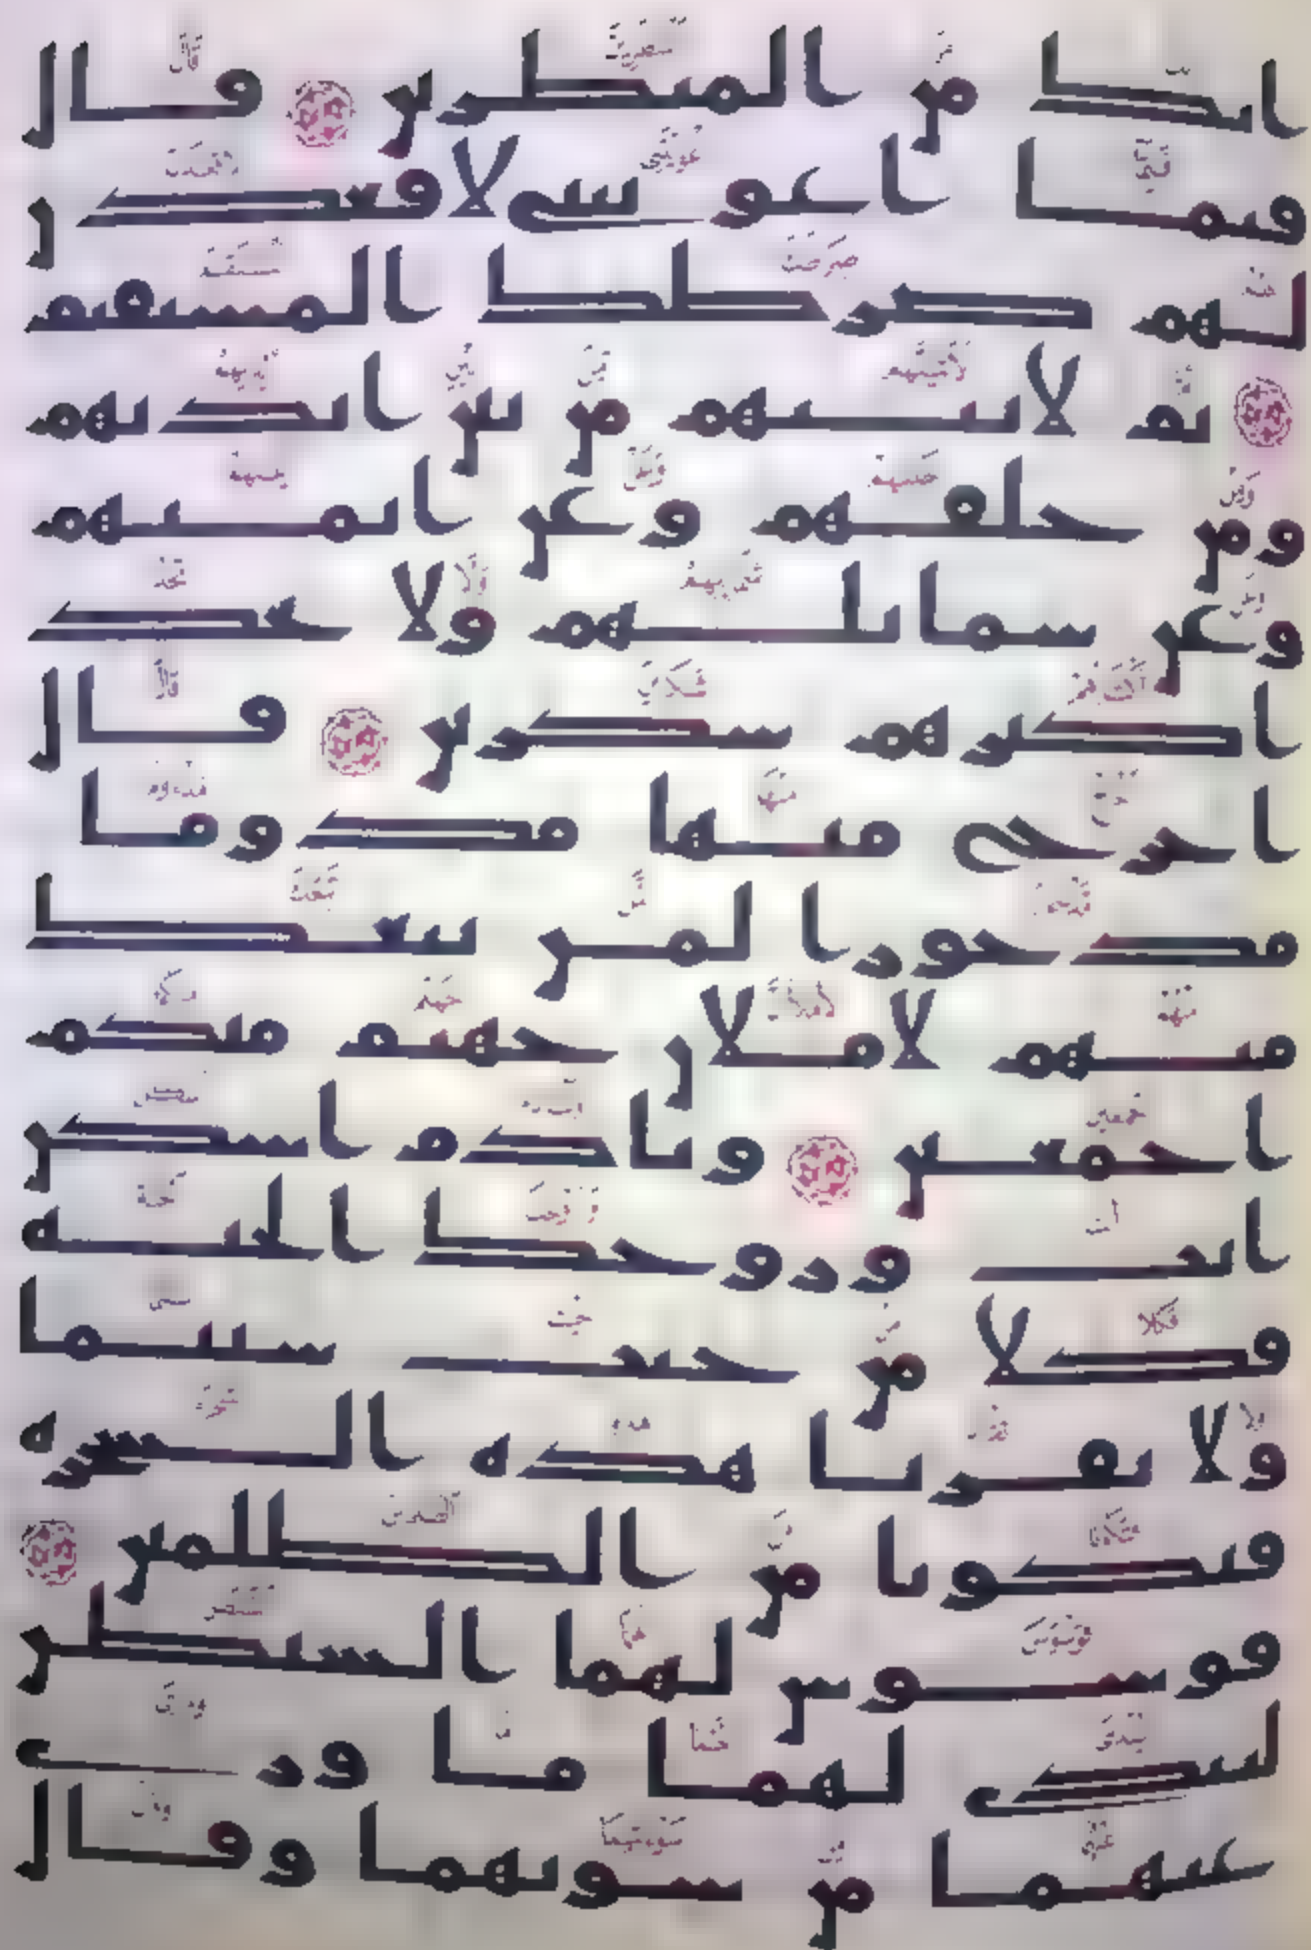 انك من المنظرين قال
فبما اغويتني لاقعدن
لهم صرطك المستقيم
ثم لاتينهم من بين ايديهم
ومن خلفهم وعن ايمنهم
وعن شمايلهم ولا تجد
اكثرهم شكرين قال
اخرج منها مذوما
مدحورا لمن تبعك
منهم لاملان جهنم منكم
اجمعين ويادم اسكن
انت وزوجك الجنة
فكلا من حيث شيتما
ولا تقربا هذه الشجرة
فتكونا من الظلمين
فوسوس لهما الشيطن
ليبدي لهما ما وري
عنهما من سوتهما وقال